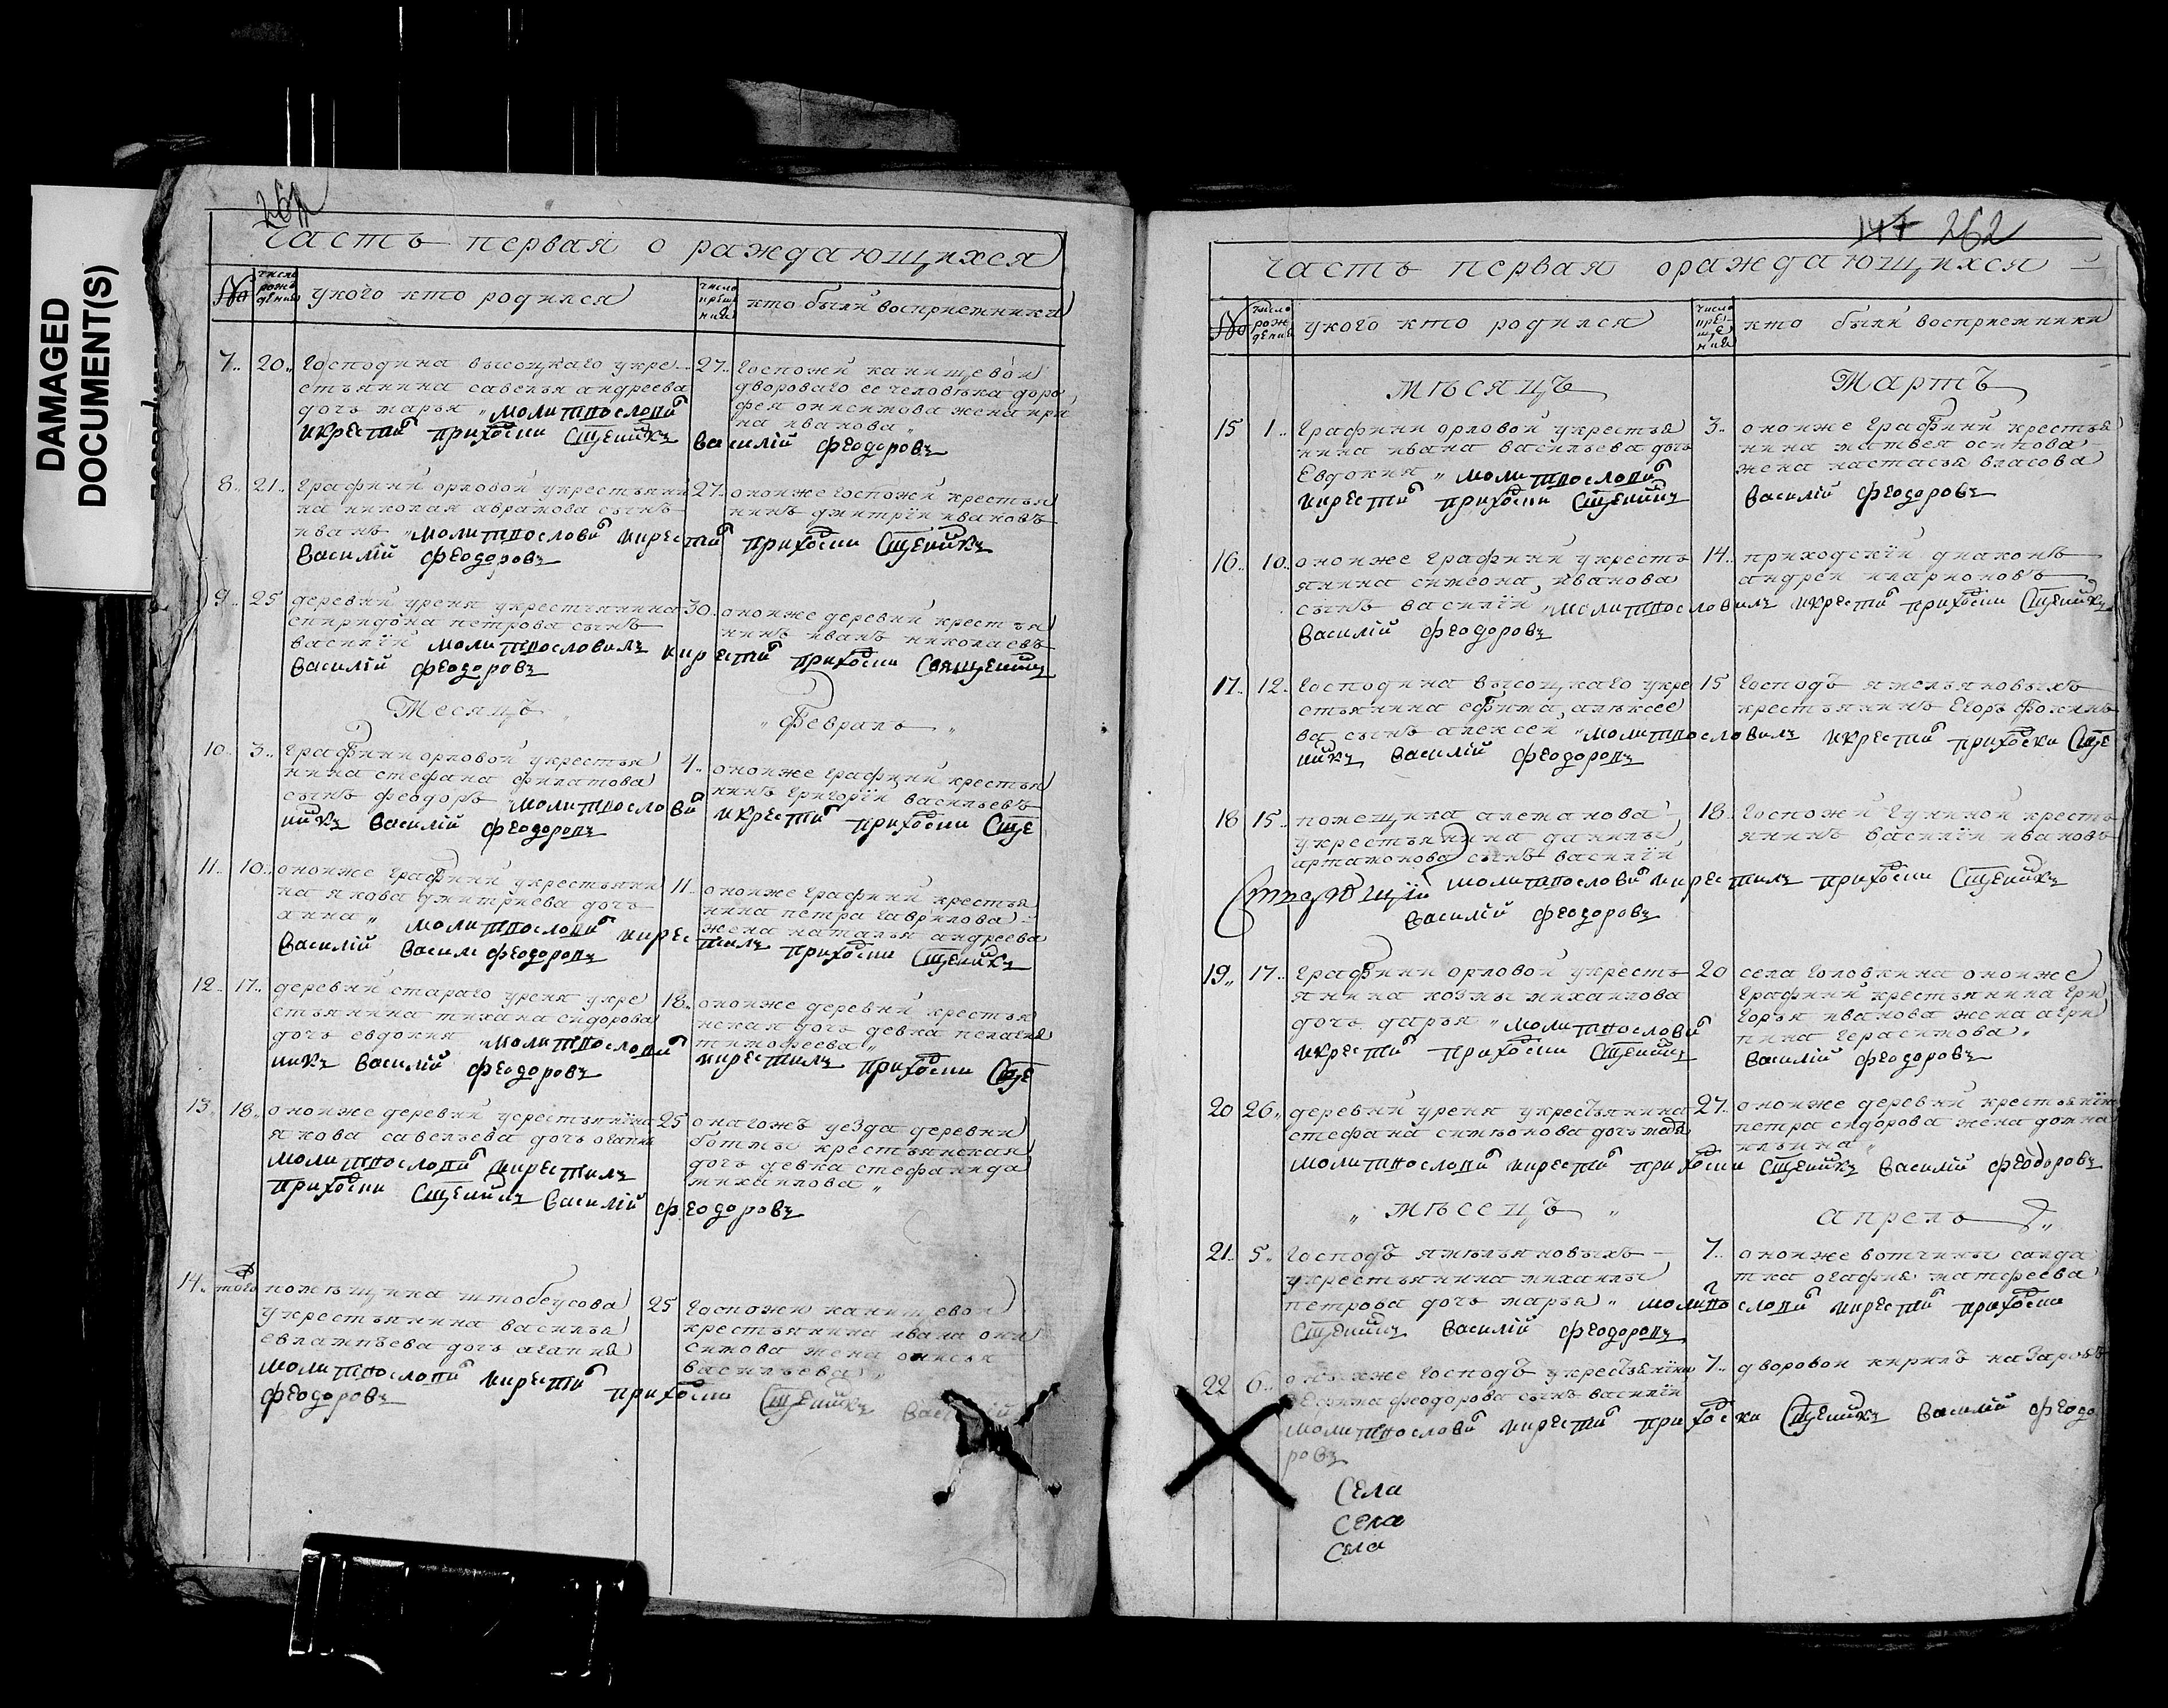 DAMAGED
DOCUMENT(S)
261
Часть первая о раждающихся
№
число рождения
у кого кто родился
число крещения
кто были восприемники
7.. 20.. Господина высоцкаго укре
стьянина савелья андреева
дочь марья молитвословил
икрестил приходски Сщенникъ
27.. Госпожи канищевой
двороваго ее человека доро
фея онисимова жена ири
на иванова
Василий Феодоровъ
8.. 21.. Графини орловой укрестьяни
на николая аврамова сынъ
иванъ молитвословил икрестил приходски Сщенникъ
Василий Феодоровъ
27.. оной же госпожи крестья
нинъ дмитрий ивановъ
9.. 25 деревни уреня укрестьянина
спиридона петрова сынъ
василий молитвословилъ икрестил приходски Священникъ
Василий Феодоровъ
30.. оной же деревни крестья
нинъ иванъ николаевъ
Месяцъ Февраль
10.. 3.. Графини орловой укрестья
нина стефана филатова
сынъ феодоръ молитвословил икрестил приходски Сще
нникъ Василий Феодоровъ
4.. оной же графини крестья
нинъ григорий васильевъ
11.. 10.. оной же графини укрестьяни
на якова дмитриева дочь
анна молитвословил икрестилъ приходски Сщенникъ
Василий Васили Феодоровъ
11.. оной же графини крестья
нина петра гаврилова
жена наталья андреева
12.. 17.. деревни стараго уреня укре
стьянина тихана сидорова
дочь евдокия молитвословил
никъ Василий Феодоровъ
18.. оной же деревни крестья
нская дочь девка пелагея
тимофеева
икрестилъ приходски Сще
13.. 18.. оной же деревни укрестьянина
якова савельева дочь агапия
молитвословил икрестилъ
приходски Сщенникъ Василий Феодоровъ
25 онагожъ уезда деревни
крестьянская
дочь девка стефанида
михаилова
14.. того помещика штобеусова
укрестьянина василья
евлампиева дочь агапия
молитвословил икрестил приходски Сщенникъ Василий
Феодоровъ
25 Госпожи канищевой
крестьянина ивана они
симова жена
васильева
147 262
Часть первая о раждающихся
№
число рождения
у кого кто родился
число крещения
кто были восприемники
Мѣсяцъ Мартъ
15 1.. Графини орловой укрестья
нина ивана васильева дочь
Евдокия молитвословил
икрестил приходски Сщенникъ
3.. оной же графини крестья
нина матвея осипова
жена настасья власова
Василий Феодоровъ
16.. 10.. оной же графини укресть
янина симеона иванова
сынъ василий молитвословилъ икрестил приходски Сщенникъ
Василий Феодоровъ
14.. приходский диаконъ
андрей иларионовъ
17.. 12.. Господина высоцкаго укре
стьянина ефима алексее
ва сынъ алексей молитвословилъ икрестил приходски Сще
нникъ Василий Феодоровъ
15 Господъ ямельяновыхъ
крестьянинъ егоръ фоминъ
18 15.. помещика
укрестьянина данилы
артамонова сынъ василий
молитвословил икрестилъ приходски Сщенникъ
Василий Феодоровъ
18.. Госпожи кресть
янинъ василий ивановъ
19.. 17.. Графини орловой укресть
янина козмы михаилова
дочь дарья молитвословил
икрестил приходски Сщенникъ
20 села головкина оной же
графини крестьянина гри
горья иванова жена агри
пина герасимова
Василий Феодоровъ
20 26.. деревни уреня укрестьянина
стефана симеонова дочь
молитвословил икрестил приходски Сщенникъ Василий Феодоровъ
27.. оной же деревни крестьянина
петра сидорова жена домна
ильина
Мѣсецъ Апрель
21.. 5.. Господъ ямельяновыхъ
укрестьянина михаилы
петрова дочь марья молитвословил икрестил приходски
Сщенникъ Василий Феодоровъ
7.. оной же вотчины салда
тка агафия матфеева
22 6.. онъхже господъ укрестьянина
феодорова сынъ василий
молитвословил икрестил приходски Сщенникъ Василий Феодо
ровъ
7.. дворовой кирилъ назаровъ
Села
Села
Села